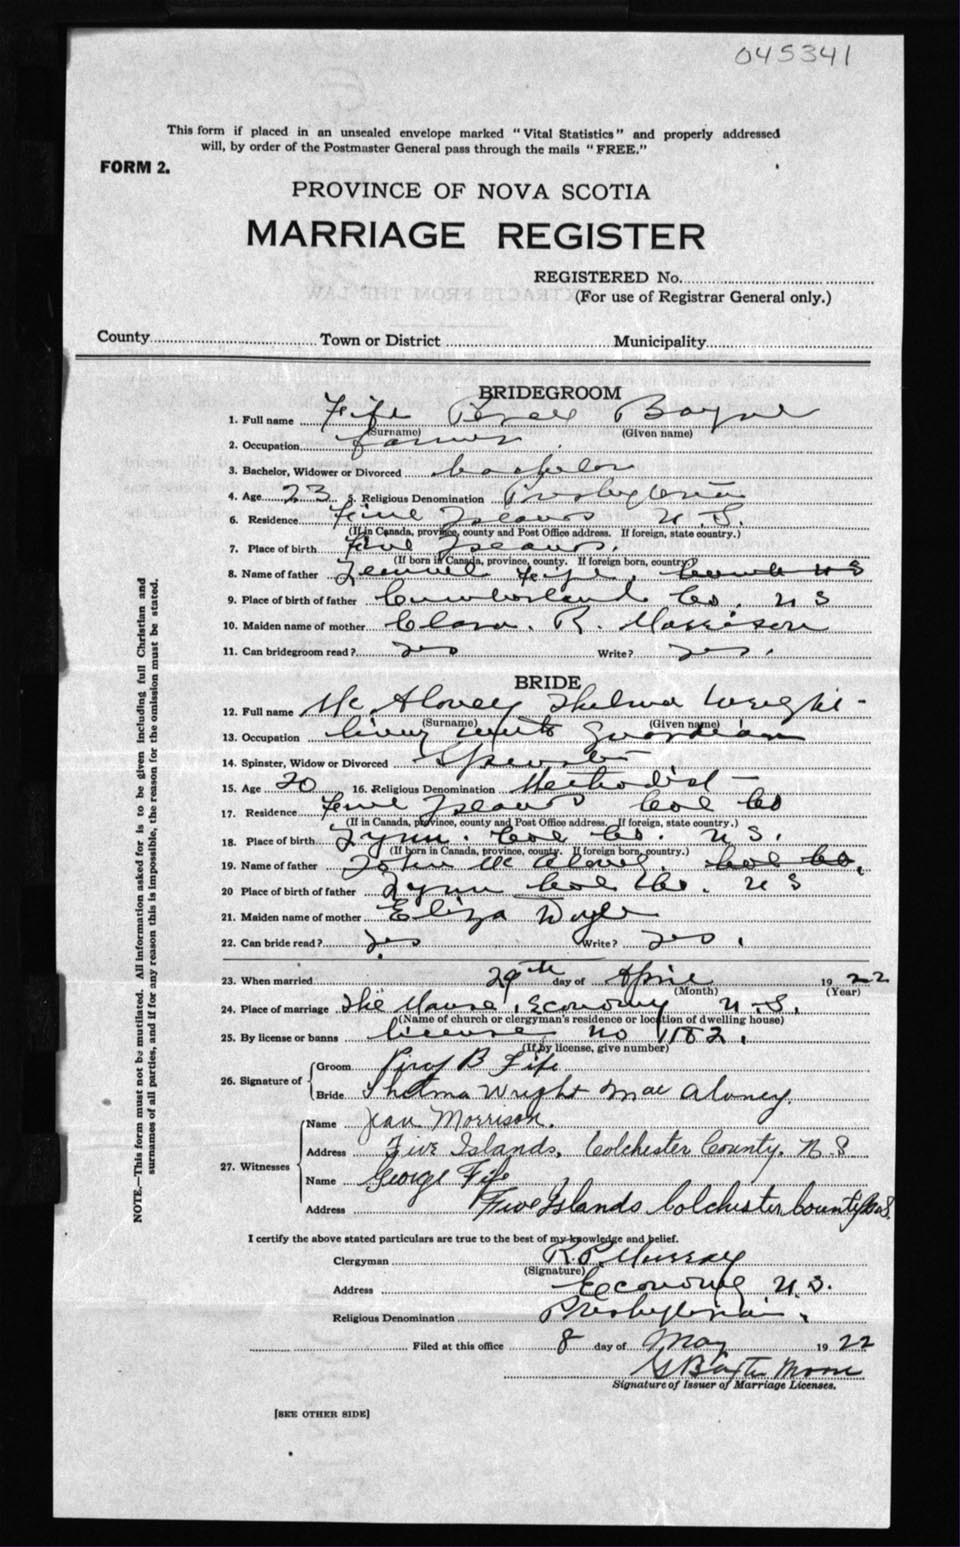 045341
This form if placed in an unsealed envelope marked "Vital Statistics" and properly addressed
will, by order of the Postmaster General pass through the mails "FREE."
FORM 2.
PROVINCE OF NOVA SCOTIA
MARRIAGE REGISTER
REGISTERED No.
(For use of Registrar General only.)
County Town or District Municipality
BRIDEGROOM
1. Full name Fife Bayne
(Surname) (Given name)
2. Occupation farmer
3. Bachelor, Widower or Divorced bachelor
4. Age 23 5. Religious Denomination Presbyterian
6. Residence Five Islands N. S.
(If in Canada, province, county and Post Office address. If foreign, state country.)
7. Place of birth Five Islands.
(If born in Canada, province, county. If foreign born, country)
8. Name of father Lemuel Fife, N S
9. Place of birth of father Cumberland Co. N S
10. Maiden name of mother Clara. R. Morrison
11. Can bridegroom read? yes Write? yes.
BRIDE
12. Full name Mc Aloney Thelma Wright -
(Surname) (Given name)
13. Occupation living with Guardian
14. Spinster, Widow or Divorced Spinster
15. Age 20 16. Religious Denomination Methodist -
17. Residence Five Islands Col Co
(If in Canada, province, county and Post Office address. If foreign, state country.)
18. Place of birth Lynn. Col Co. N S.
(If born in Canada, province, county. If foreign born, country.)
19. Name of father John Mc Aloney, Col Co.
20 Place of birth of father Lynn Col Co. N S
21. Maiden name of mother Eliza Doyle
22. Can bride read? yes Write? yes.
23. When married 29th day of April 1922
(Month) (Year)
24. Place of marriage The Manse, Economy N. S.
(Name of church or clergyman's residence or location of dwelling house)
25. By license or banns license no 1182.
(If by license, give number)
26. Signature of
Groom Percy B Fife
Bride Thelma Wright Mac Aloney.
27. Witnesses
Name Jean Morrison.
Address Five Islands, Colchester County, N. S
Name George Fife
Address Five Islands Colchester County N.S.
I certify the above stated particulars are true to the best of my knowledge and belief.
Clergyman R. P. Murray
(Signature)
Address Economy N. S.
Religious Denomination Presbyterian.
Filed at this office 8 day of May 1922
Baxter Moore
Signature of Issuer of Marriage Licenses.
[SEE OTHER SIDE]
NOTE.—This form must not be mutilated. All information asked for is to be given including full Christian and
surnames of all parties, and if for any reason this is impossible, the reason for the omission must be stated.